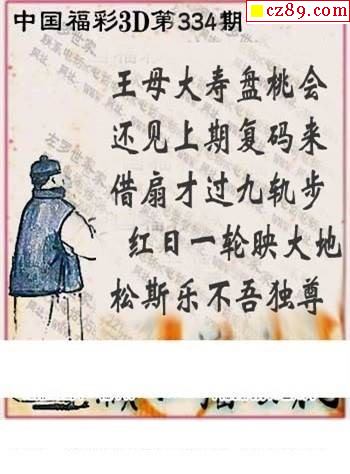 cz89.com
中国福彩3D第334期
王母大寿盘桃会
还见上期复码来
借扇才过九轨步
红日一轮映大地
松斯乐不吾独尊